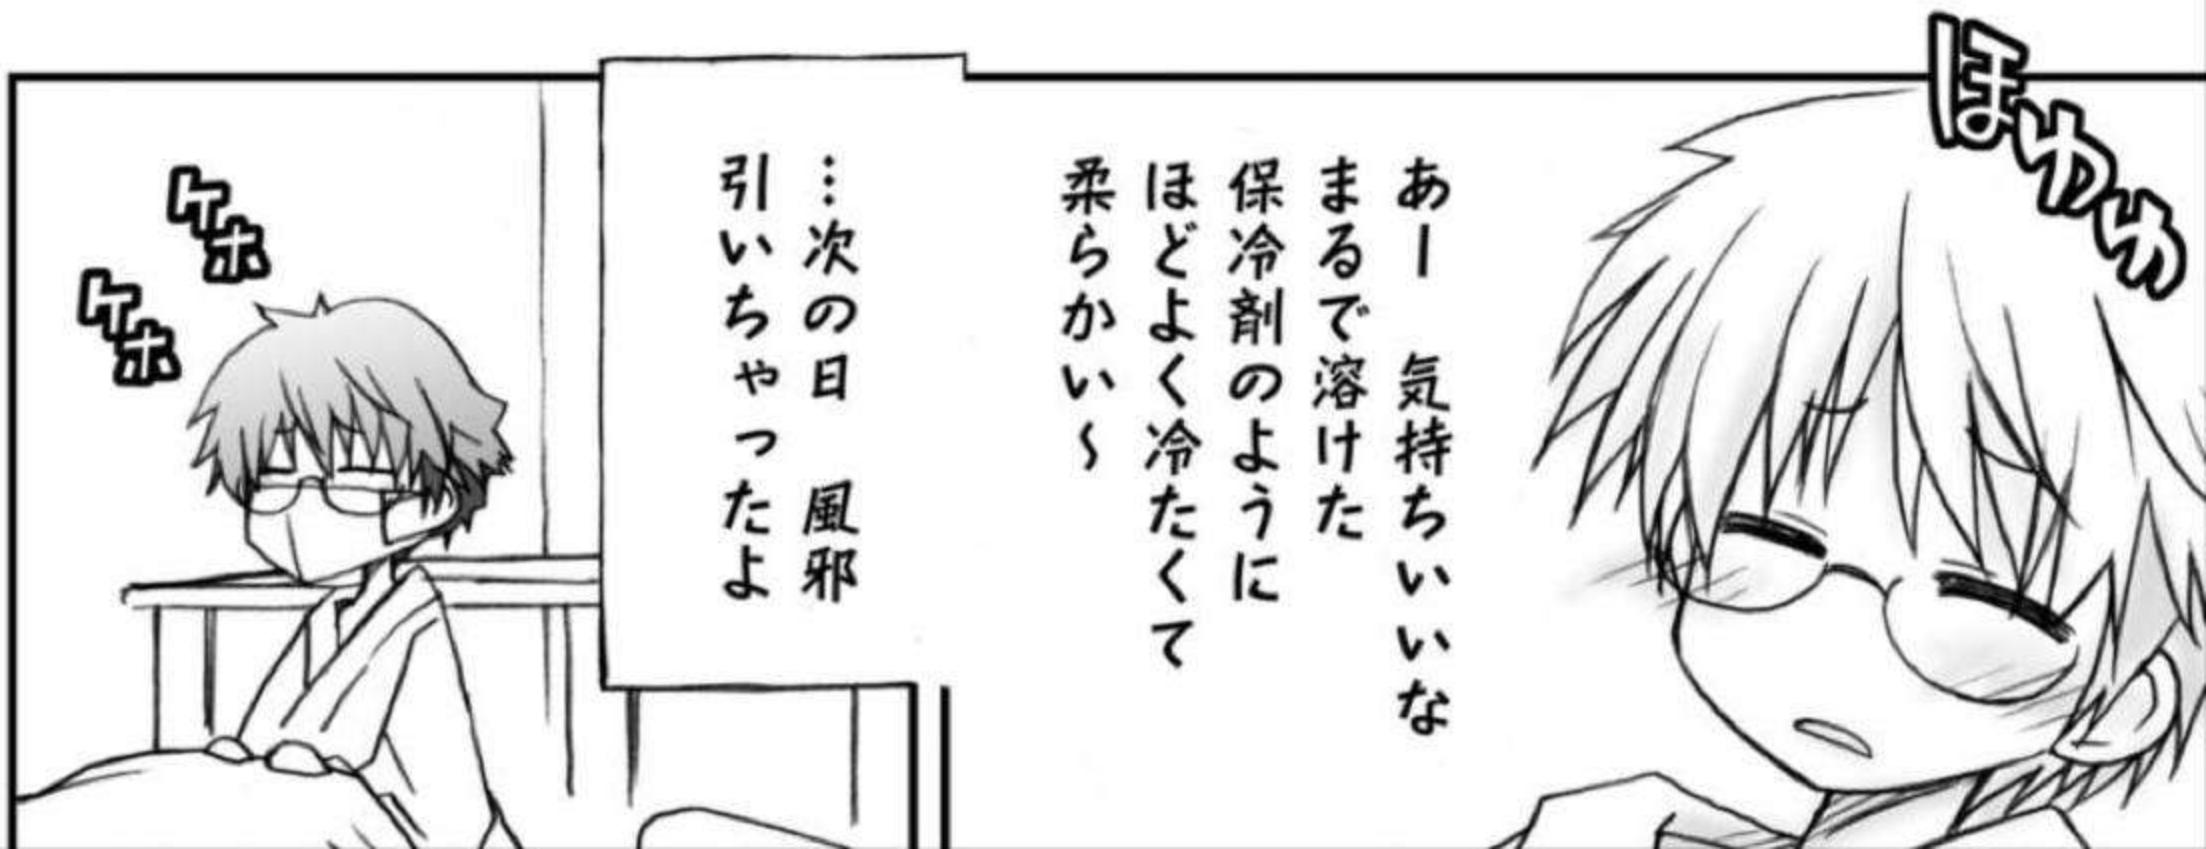 ほわわ
あー　気持ちいいな
まるで溶けた
保冷剤のように
ほどよく冷たくて
柔らかい～
…次の日　風邪
引いちゃったよ
ケホ
ケホ